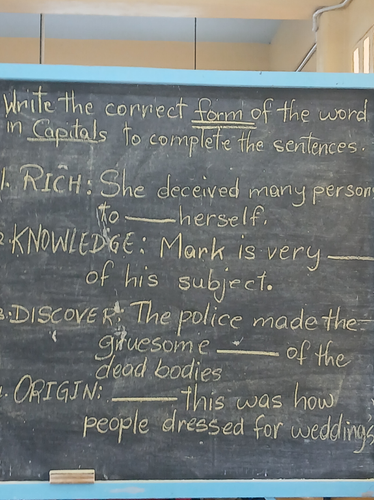 Write the correct form of the word
in Capitals to complete the sentences.
1. RICH: She deceived many person
to ___ herself.
2. KNOWLEDGE: Mark is very ___
of his subject.
3. DISCOVER: The police made the
gruesome ___ of the
dead bodies
4. ORIGIN: ___ this was how
people dressed for weddings